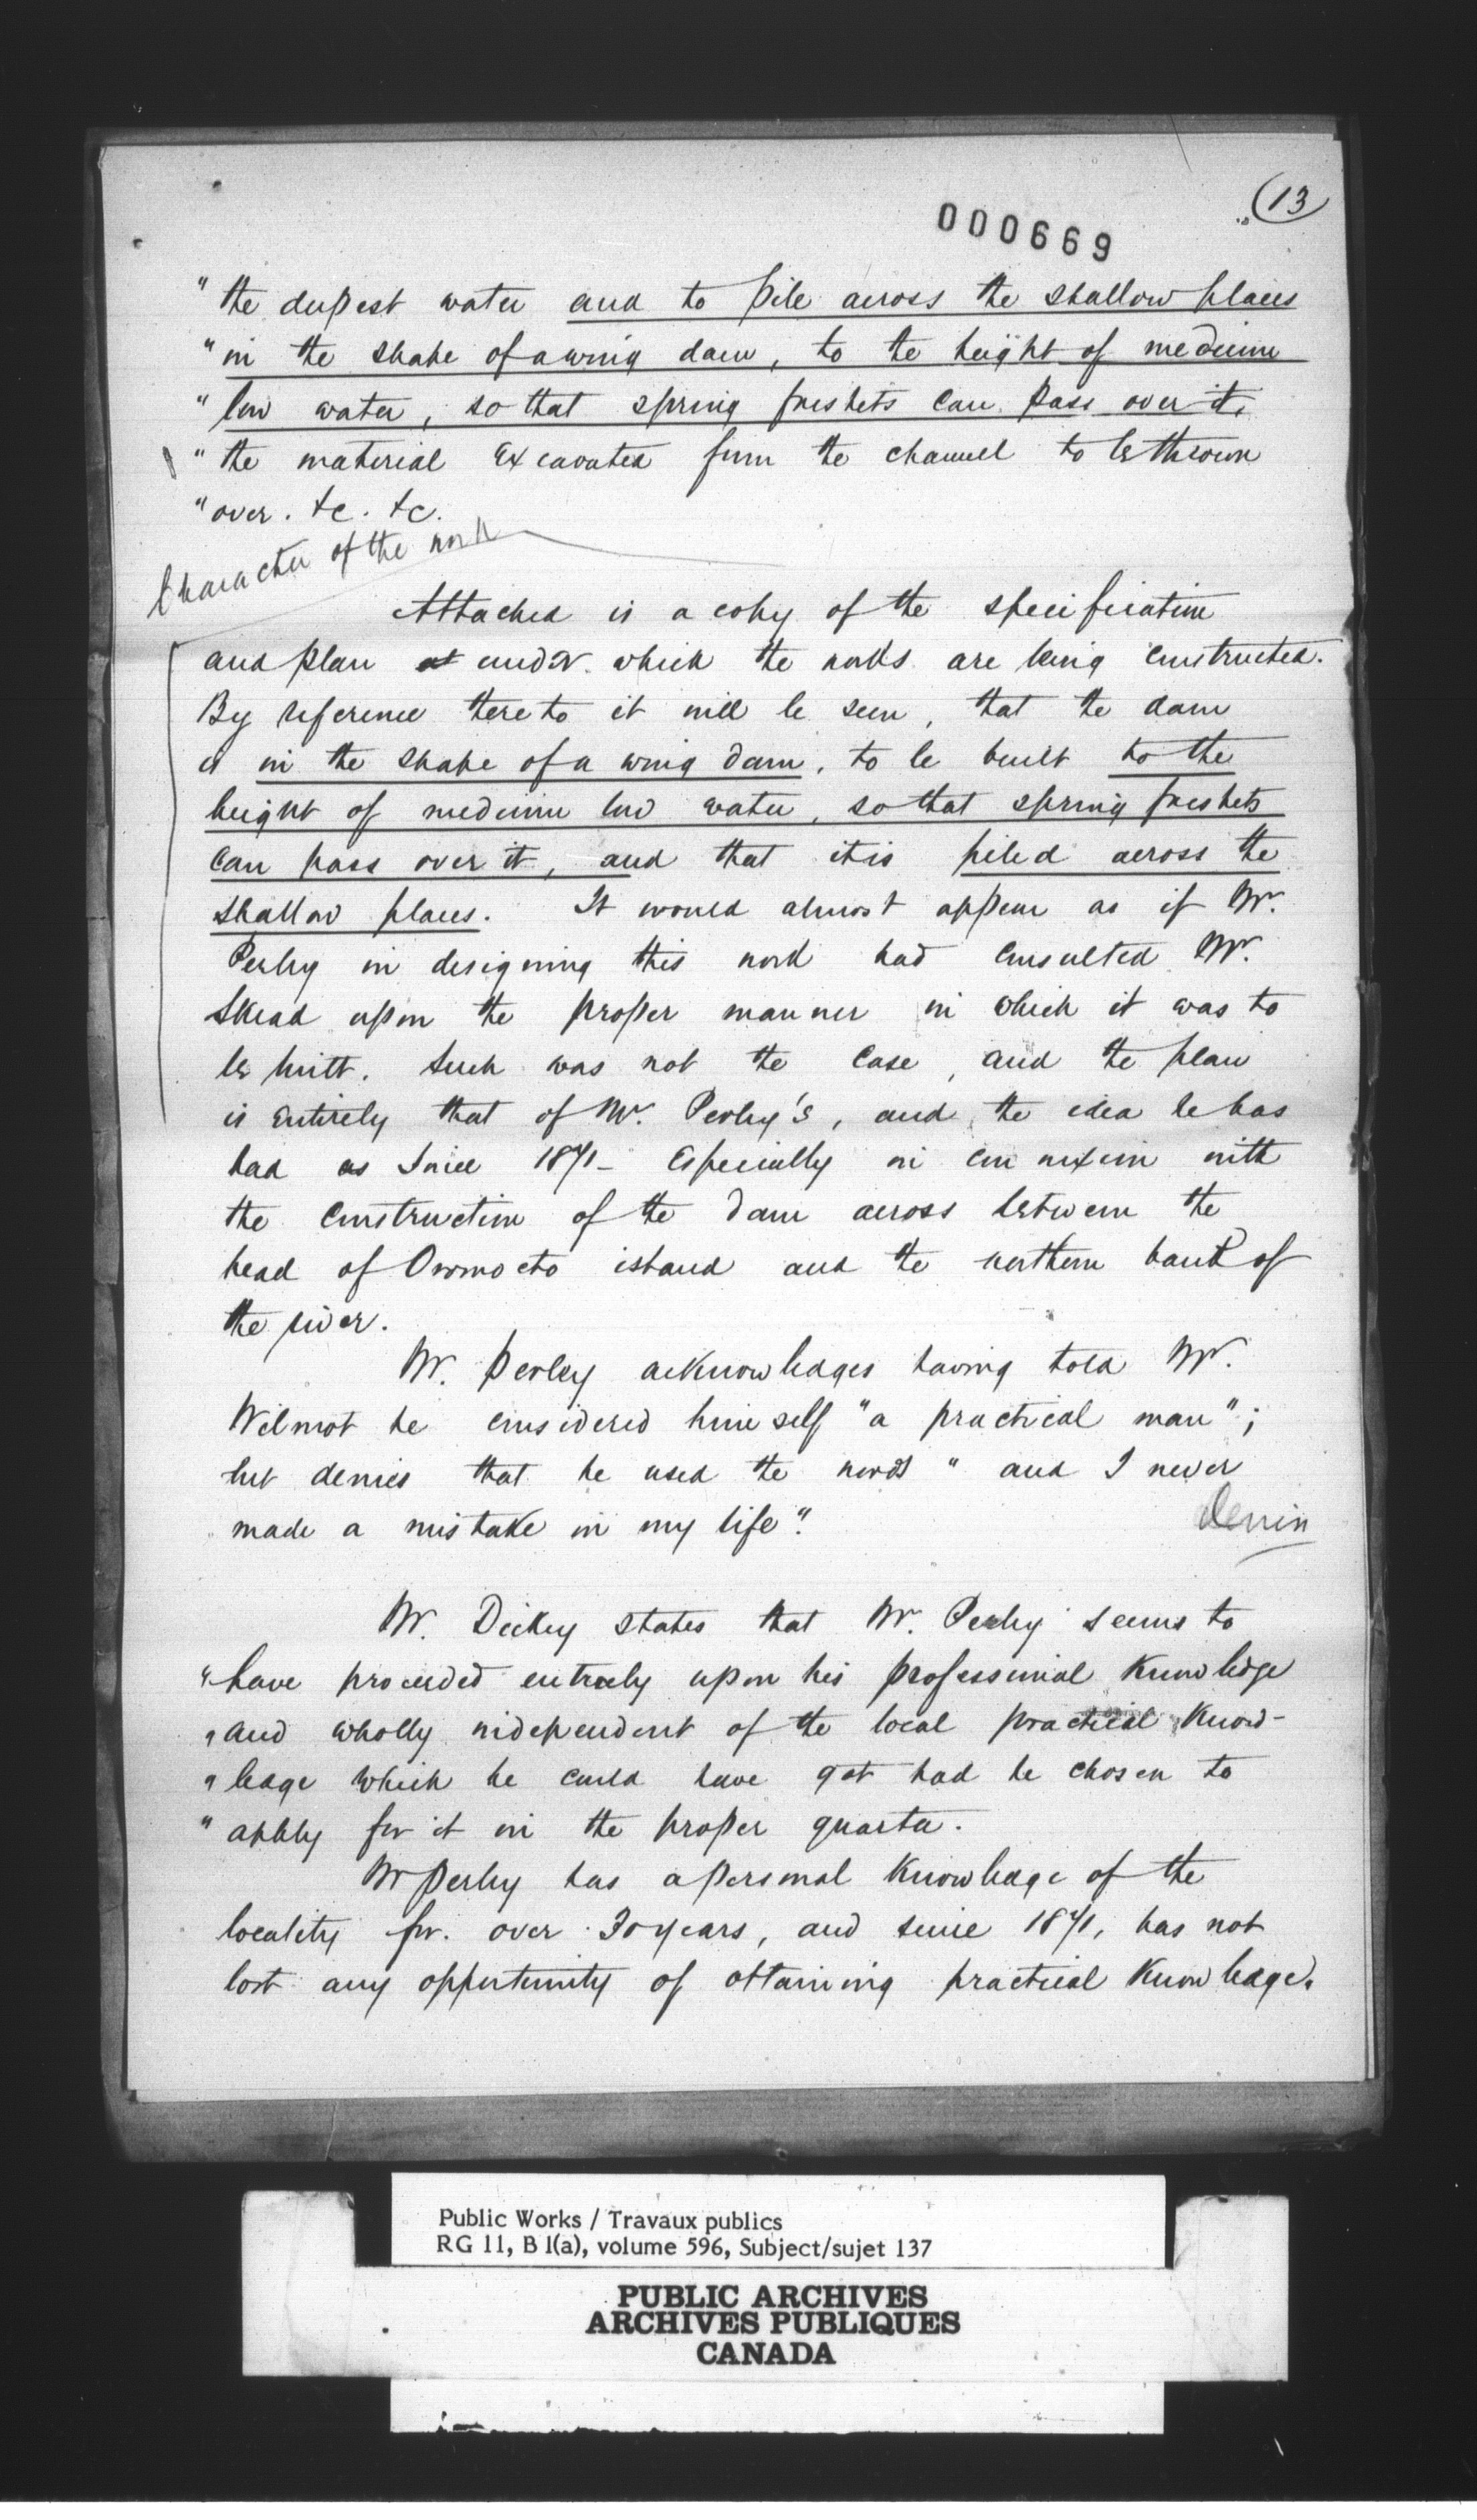 (13)
000669
" the deepest water and to pile across the shallow places
" in the shape of a wing dam, to the height of medium
" low water, so that spring freshets can pass over it,
" the material excavated from the channel to be thrown
" over. &c. &c.
Character of the work
Attached is a copy of the specification
and plan at under which the works are being constructed.
By reference thereto it will be seen, that the dam
is in the shape of a wing dam, to be built to the
height of medium low water, so that spring freshets
can pass over it, and that it is piled across the
shallow places. It would almost appear as if Mr.
Perley in designing this work had consulted Mr.
Skead upon the proper manner in which it was to
be built. Such was not the case, and the plan
is entirely that of Mr. Perley's, and the idea he has
had as since 1871 - especially in connexion with
the construction of the dam across between the
head of Oromocto island and the northern bank of
the river.
Mr. Perley acknowledges having told Mr.
Wilmot he considered himself "a practical man";
but denies that he used the words "and I never
made a mistake in my life".
Mr. Dickey states that Mr. Perley seems to
" have proceeded entirely upon his professional knowledge
" and wholly independent of the local practical know-
" ledge which he could have got had he chosen to
" apply for it in the proper quarter.
Mr Perley has a personal knowledge of the
locality for over 30 years, and since 1871, has not
lost any opportunity of obtaining practical knowledge.
Public Works / Travaux publics
RG 11, B 1(a), volume 596, Subject/sujet 137
PUBLIC ARCHIVES
ARCHIVES PUBLIQUES
CANADA